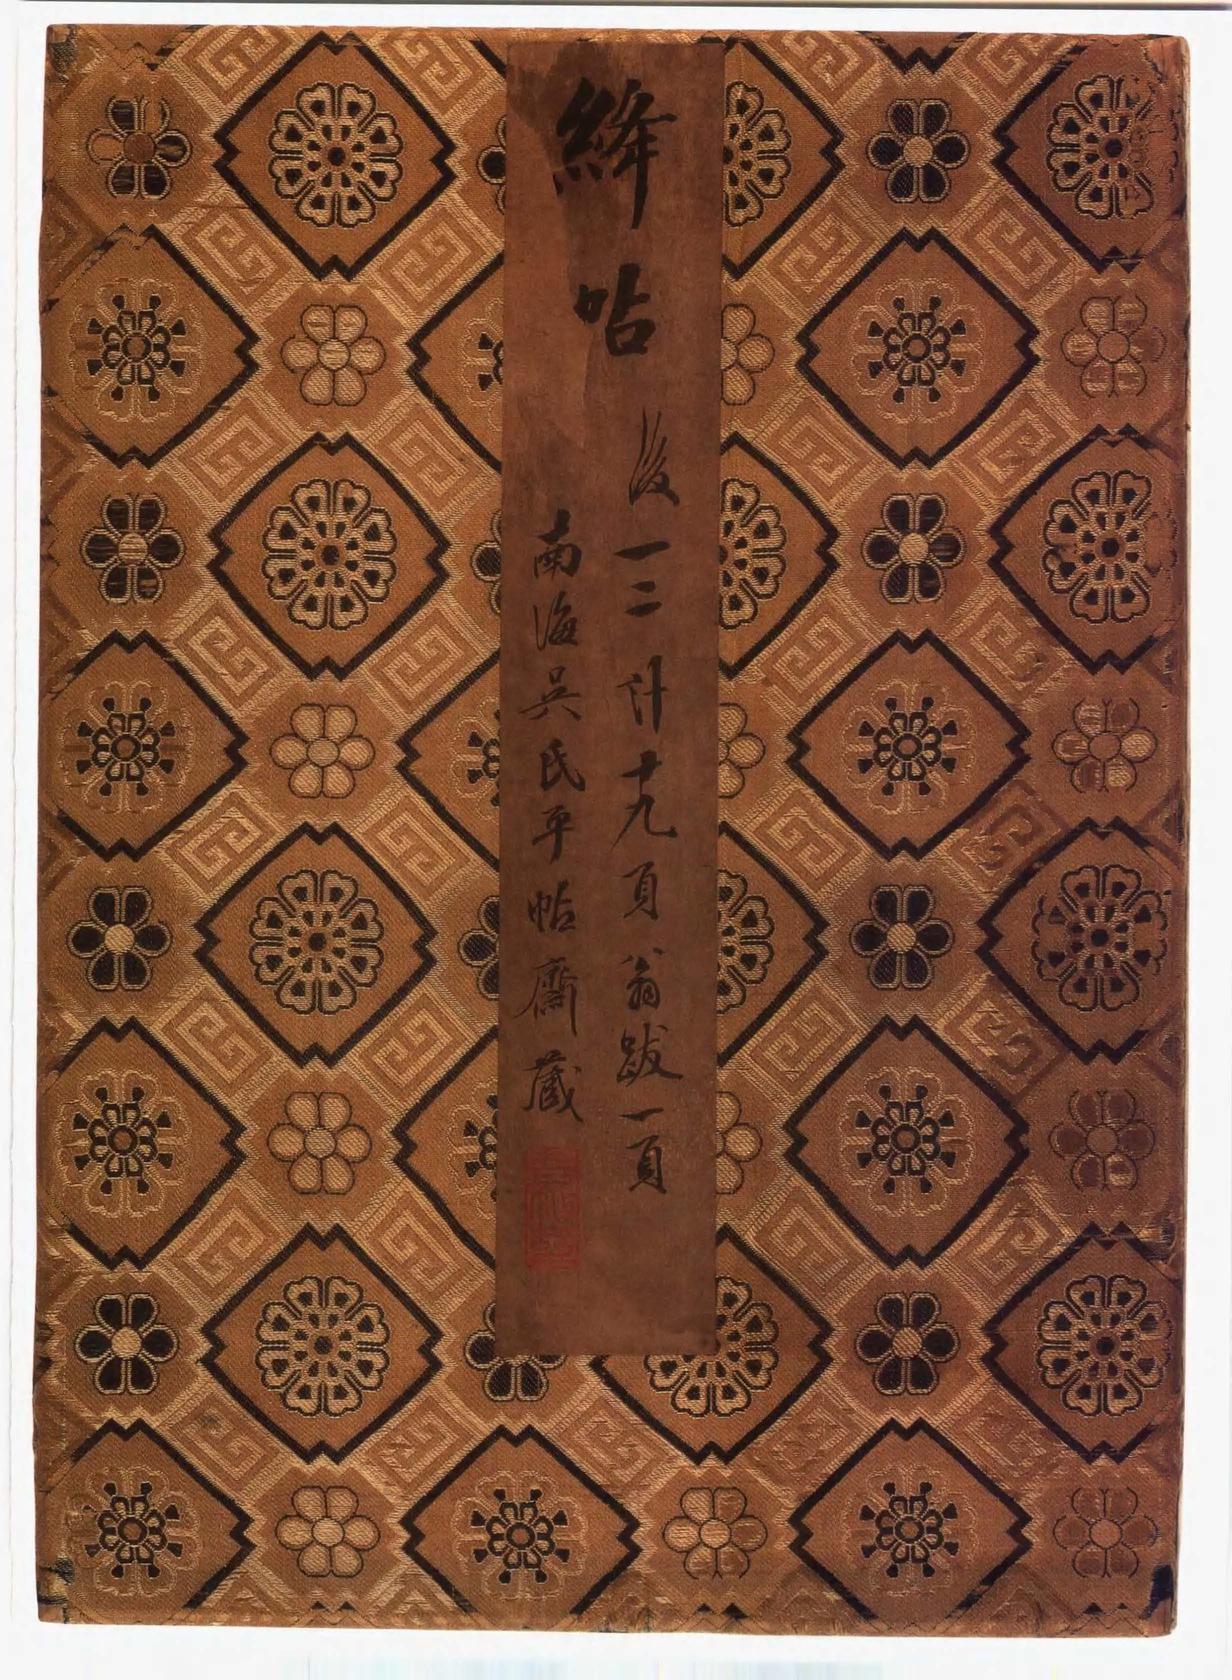 絳帖
後一二計十九頁翁跋一頁
南海吳氏平帖齋藏